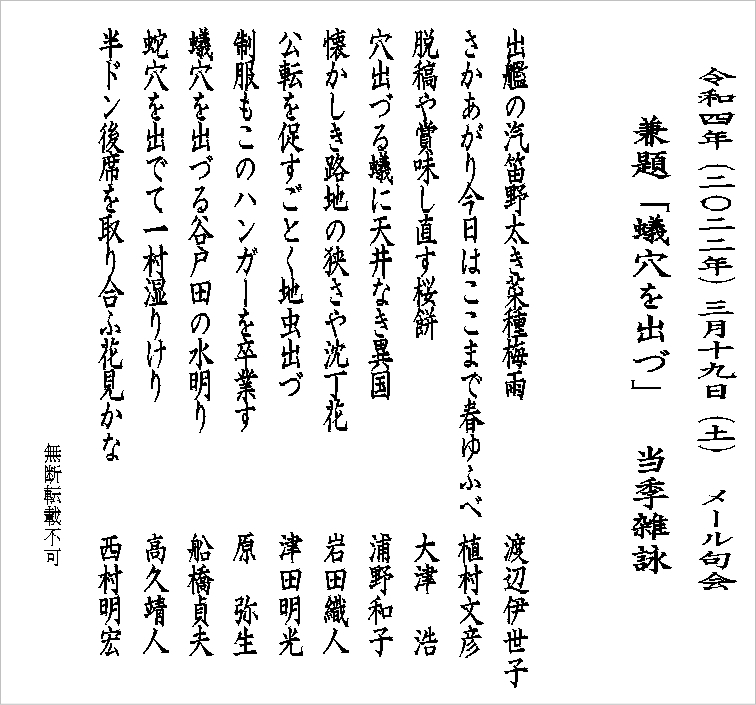 令和四年（二〇二二年）三月十九日（土）　メール句会
兼題「蟻穴を出づ」　当季雑詠
出艦の汽笛野太き菜種梅雨　渡辺伊世子
さかあがり今日はここまで春ゆふべ　植村文彦
脱稿や賞味し直す桜餅　大津　浩
穴出づる蟻に天井なき異国　浦野和子
懐かしき路地の狭さや沈丁花　岩田織人
公転を促すごとく地虫出づ　津田明光
制服もこのハンガーを卒業す　原　弥生
蟻穴を出づる谷戸田の水明り　船橋貞夫
蛇穴を出でて一村湿りけり　高久靖人
半ドン後席を取り合ふ花見かな　西村明宏
無断転載不可